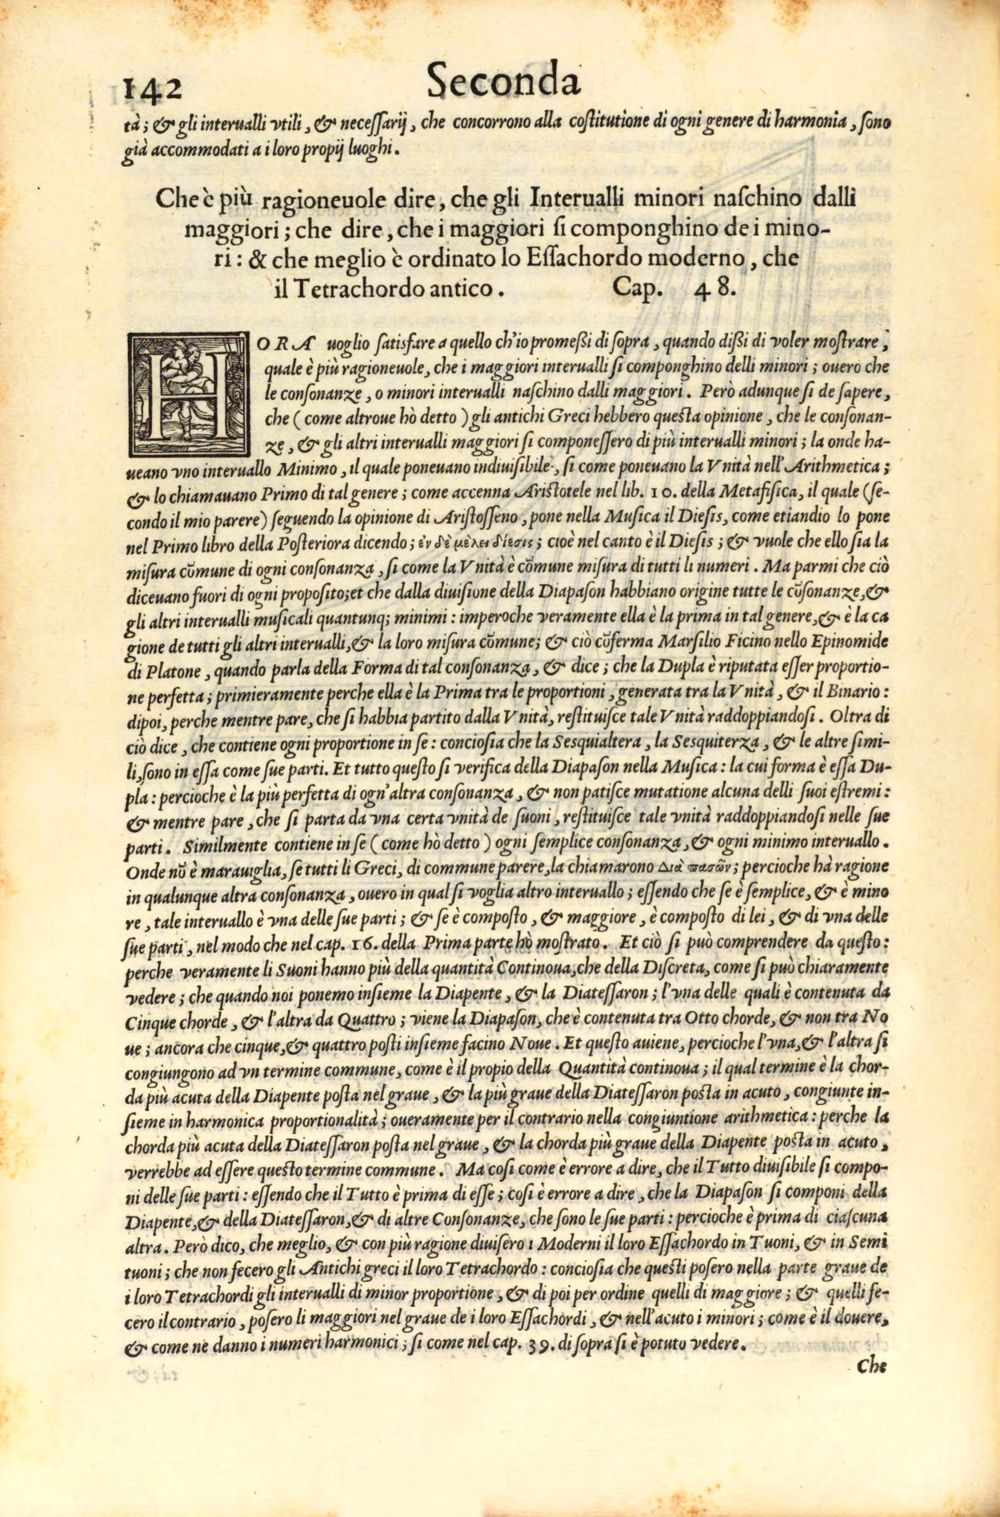 142 Seconda
tà; & gli interualli vtili, & necessarij, che concorrono alla costitutione di ogni genere di harmonia, sono
già accommodati a i loro propij luoghi.
Che è più ragioneuole dire, che gli Interualli minori naschino dalli
maggiori; che dire, che i maggiori si componghino de i mino-
ri: & che meglio è ordinato lo Essachordo moderno, che
il Tetrachordo antico. Cap. 48.
HORA uoglio satisfare a quello ch'io promessi di sopra, quando dissi di voler mostrare,
quale è più ragioneuole, che i maggiori interualli si componghino delli minori; ouero che
le consonanze, o minori interualli naschino dalli maggiori. Però adunque si de sapere,
che (come altroue hò detto) gli antichi Greci hebbero questa opinione, che le consonan-
ze, & gli altri interualli maggiori si componessero di più interualli minori; la onde ha-
ueano vno interuallo Minimo, il quale poneuano indiuisibile, si come poneuano la Vnità nell'Arithmetica;
& lo chiamauano Primo di tal genere; come accenna Aristotele nel lib. 10. della Metafisica, il quale (se-
condo il mio parere) seguendo la opinione di Aristosseno, pone nella Musica il Diesis, come etiandio lo pone
nel Primo libro della Posteriora dicendo; ἐν δὲ μέλει δίεσις; cioè nel canto è il Diesis; & vuole che ello sia la
misura cõmune di ogni consonanza, si come la Vnità è cõmune misura di tutti li numeri. Ma parmi che ciò
diceuano fuori di ogni proposito; et che dalla diuisione della Diapason habbiano origine tutte le cõsonanze, &
gli altri interualli musicali quantunq; minimi: imperoche veramente ella è la prima in tal genere, & è la ca
gione de tutti gli altri interualli, & la loro misura cõmune; & ciò cõferma Marsilio Ficino nello Epinomide
di Platone, quando parla della Forma di tal consonanza, & dice; che la Dupla è riputata esser proportio-
ne perfetta; primieramente perche ella è la Prima tra le proportioni, generata tra la Vnità, & il Binario:
dipoi, perche mentre pare, che si habbia partito dalla Vnità, restituisce tale Vnità raddoppiandosi. Oltra di
ciò dice, che contiene ogni proportione in se: conciosia che la Sesquialtera, la Sesquiterza, & le altre simi-
li, sono in essa come sue parti. Et tutto questo si verifica della Diapason nella Musica: la cui forma è essa Du-
pla: percioche è la più perfetta di ogn'altra consonanza, & non patisce mutatione alcuna delli suoi estremi:
& mentre pare, che si parta da vna certa vnità de suoni, restituisce tale vnità raddoppiandosi nelle sue
parti. Similmente contiene in se (come hò detto) ogni semplice consonanza, & ogni minimo interuallo.
Onde nõ è marauiglia, se tutti li Greci, di commune parere, la chiamarono Διὰ πασῶν; percioche hà ragione
in qualunque altra consonanza, ouero in qual si voglia altro interuallo; essendo che se è semplice, & è mino
re, tale interuallo è vna delle sue parti; & se è composto, & maggiore, è composto di lei, & di vna delle
sue parti, nel modo che nel cap. 16. della Prima parte hò mostrato. Et ciò si può comprendere da questo:
perche veramente li Suoni hanno più della quantità Continoua, che della Discreta, come si può chiaramente
vedere; che quando noi ponemo insieme la Diapente, & la Diatessaron; l'vna delle quali è contenuta da
Cinque chorde, & l'altra da Quattro; viene la Diapason, che è contenuta tra Otto chorde, & non tra No
ue; ancora che cinque, & quattro posti insieme facino Noue. Et questo auiene, percioche l'vna, & l'altra si
congiungono ad vn termine commune, come è il propio della Quantità continoua; il qual termine è la chor-
da più acuta della Diapente posta nel graue, & la più graue della Diatessaron posta in acuto, congiunte in-
sieme in harmonica proportionalità; oueramente per il contrario nella congiuntione arithmetica: perche la
chorda più acuta della Diatessaron posta nel graue, & la chorda più graue della Diapente posta in acuto,
verrebbe ad essere questo termine commune. Ma cosi come è errore a dire, che il Tutto diuisibile si compo-
ni delle sue parti: essendo che il Tutto è prima di esse; cosi è errore a dire, che la Diapason si componi della
Diapente, & della Diatessaron, & di altre Consonanze, che sono le sue parti: percioche è prima di ciascuna
altra. Però dico, che meglio, & con più ragione diuisero i Moderni il loro Essachordo in Tuoni, & in Semi
tuoni; che non fecero gli Antichi greci il loro Tetrachordo: conciosia che questi posero nella parte graue de
i loro Tetrachordi gli interualli di minor proportione, & di poi per ordine quelli di maggiore; & quelli fe-
cero il contrario, posero li maggiori nel graue de i loro Essachordi, & nell'acuto i minori; come è il douere,
& come ne danno i numeri harmonici; si come nel cap. 39. di sopra si è potuto vedere.
Che